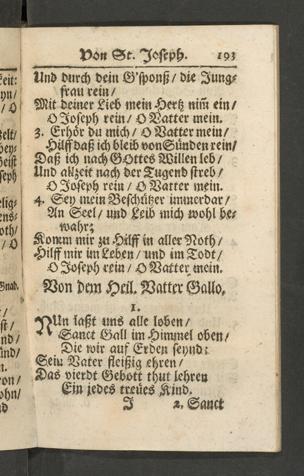 Von St. Joseph. 193
Und durch dein G'sponß / die Jung-
frau rein /
Mit deiner Lieb mein Hertz nim̃ ein /
O Joseph rein / O Vatter mein.
3. Erhör du mich / O Vatter mein /
Hilff daß ich bleib von Sünden rein /
Daß ich nach GOttes Willen leb /
Und allzeit nach der Tugend streb /
O Joseph rein / O Vatter mein.
4. Sey mein Beschützer immerdar /
An Seel / und Leib mich wohl be-
wahr;
Komm mir zu Hilff in aller Noth /
Hilff mir im Leben / und im Todt /
O Joseph rein / O Vatter mein.
Von dem Heil. Vatter Gallo.
1.
NUn laßt uns alle loben /
Sanct Gall im Himmel oben /
Die wir auf Erden seynd:
Sein Vater fleißig ehren /
Das vierdt Gebott thut lehren
Ein jedes treues Kind.
J 2. Sanct